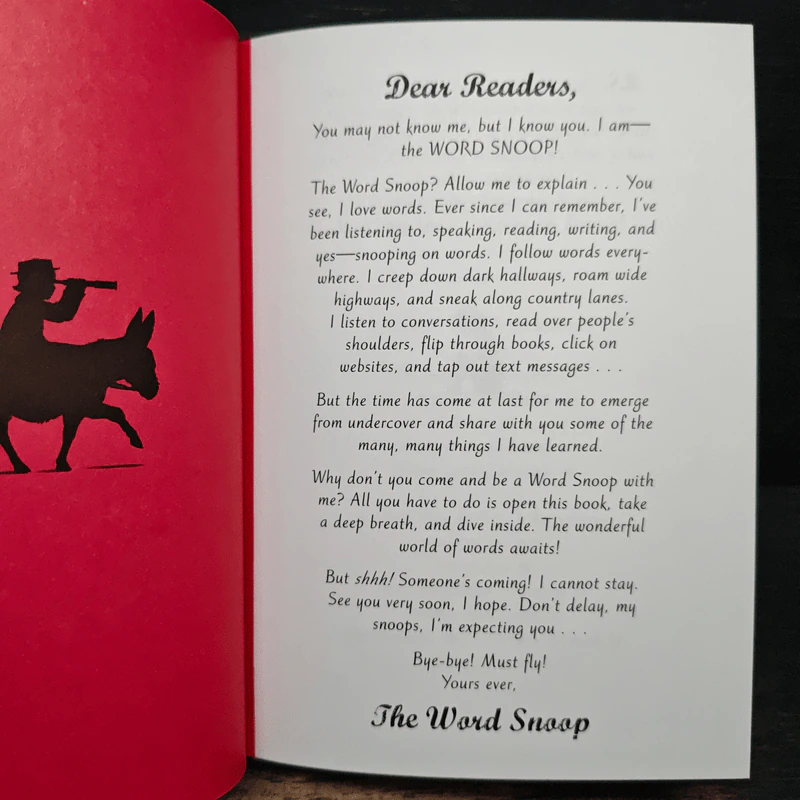 Dear Readers,
You may not know me, but I know you. I am—
the WORD SNOOP!
The Word Snoop? Allow me to explain . . . You
see, I love words. Ever since I can remember, I've
been listening to, speaking, reading, writing, and
yes—snooping on words. I follow words every-
where. I creep down dark hallways, roam wide
highways, and sneak along country lanes.
I listen to conversations, read over people's
shoulders, flip through books, click on
websites, and tap out text messages . . .
But the time has come at last for me to emerge
from undercover and share with you some of the
many, many things I have learned.
Why don't you come and be a Word Snoop with
me? All you have to do is open this book, take
a deep breath, and dive inside. The wonderful
world of words awaits!
But shhh! Someone's coming! I cannot stay.
See you very soon, I hope. Don't delay, my
snoops, I'm expecting you . . .
Bye-bye! Must fly!
Yours ever,
The Word Snoop